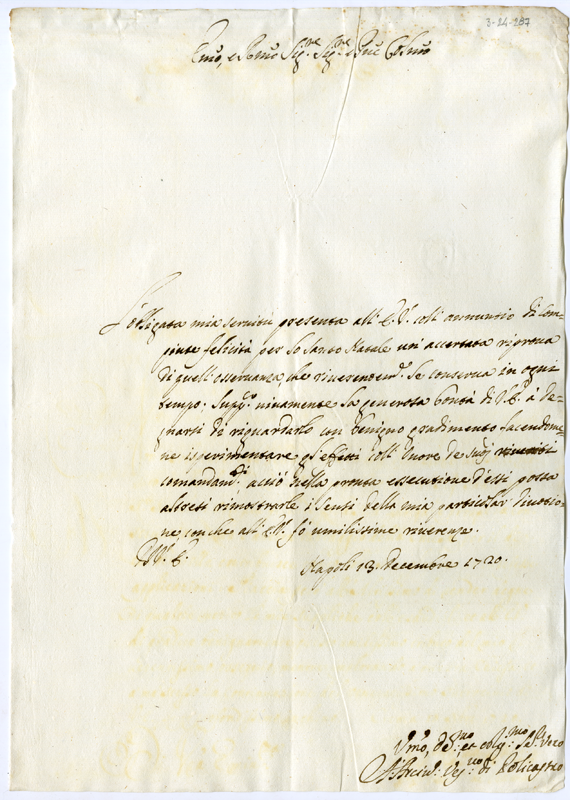 3-24-287
Em̃o, e Rmo Sig.re Sig.re e Pne Colmo
L'obligata mia servitù presenta all' E. V. coll' annuntio di com=
piute felicità per lo Santo Natale un' accertata riprova
di quell' osservanza che riverentem.e le conserva in ogni
tempo; Supp.co vivamente la generosa bontà di V. E. à de=
gnarsi di riguardarlo con benigno gradimento facendome=
ne isperimentare gl' effetti coll' honore de suoi riveriti
comandam.ti acciò nella pronta essecutione d'essi possa
altresì rimostrarle i sensi della mia particolar divotio=
ne, con che all' E. V. fò umilissime riverenze.
D. V. E.
Napoli 13. Decembre 1720.
Vmo, de.mo et oblig.mo Se.re Vero
Vesc.vo di Policastro